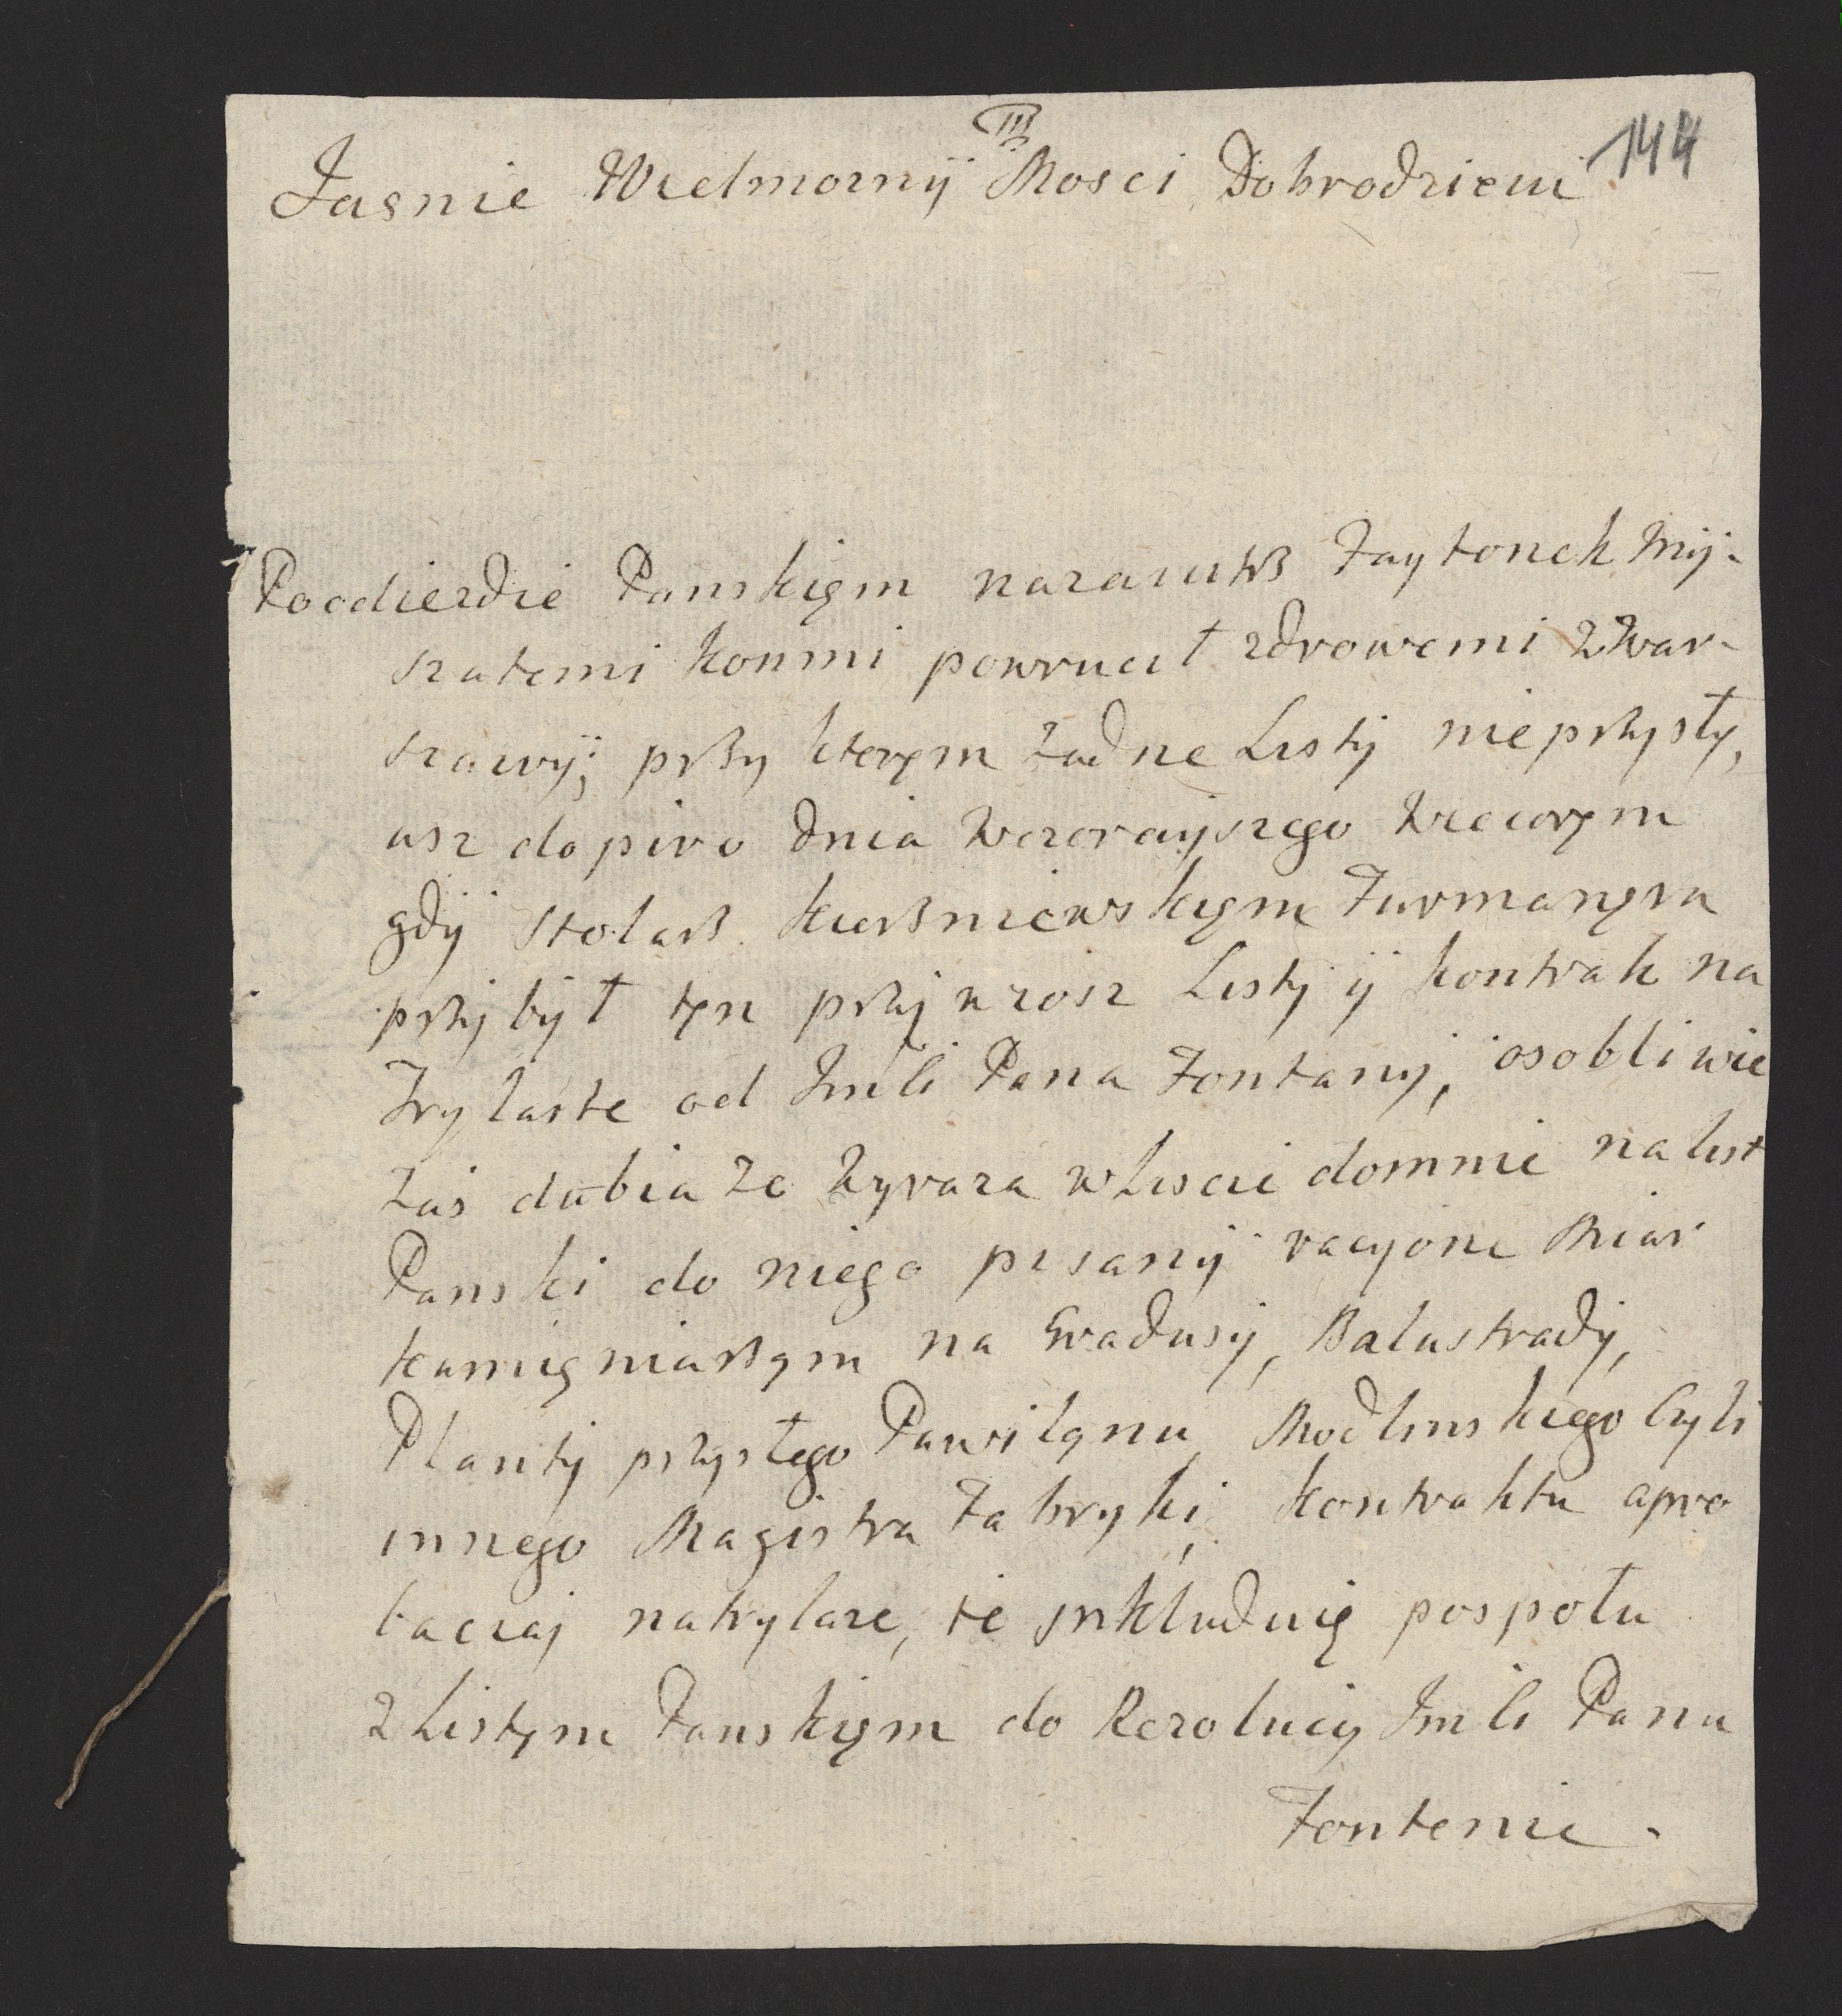 144
III
Jasnie Wielmozny Mosci Dobrodzieiu
Poodiezdie Panskięm nazaiutrz Zaytonek Myi-
szatemi konmi powrucił zdrowemi z War-
szawy; przy kterym żadne Listy nieprzysły,
asz dopiro dnia Wczorayszego Wiecorym
gdy Stolarz kuerżniewskięm Furmanęm
przybył tęn przywiosz Listy y kontrak na
Trylaste od Jmci Pana Fontany, osobliwie
zas dubia Ze Wyraza w Liscie domnie na list
Panski do niego pisany racyone Miar
kamięniarzom na Gradusy, Balustrady,
Planty przysłego Pawilonu Modlinskiego Czyli
innego Magistra Fabryki, kontraktu apro
baczaj natrylaze, te jnkluduię pospołu
z Listęm Panskięm do Rezolucy Jmci Panu
Fontenie.